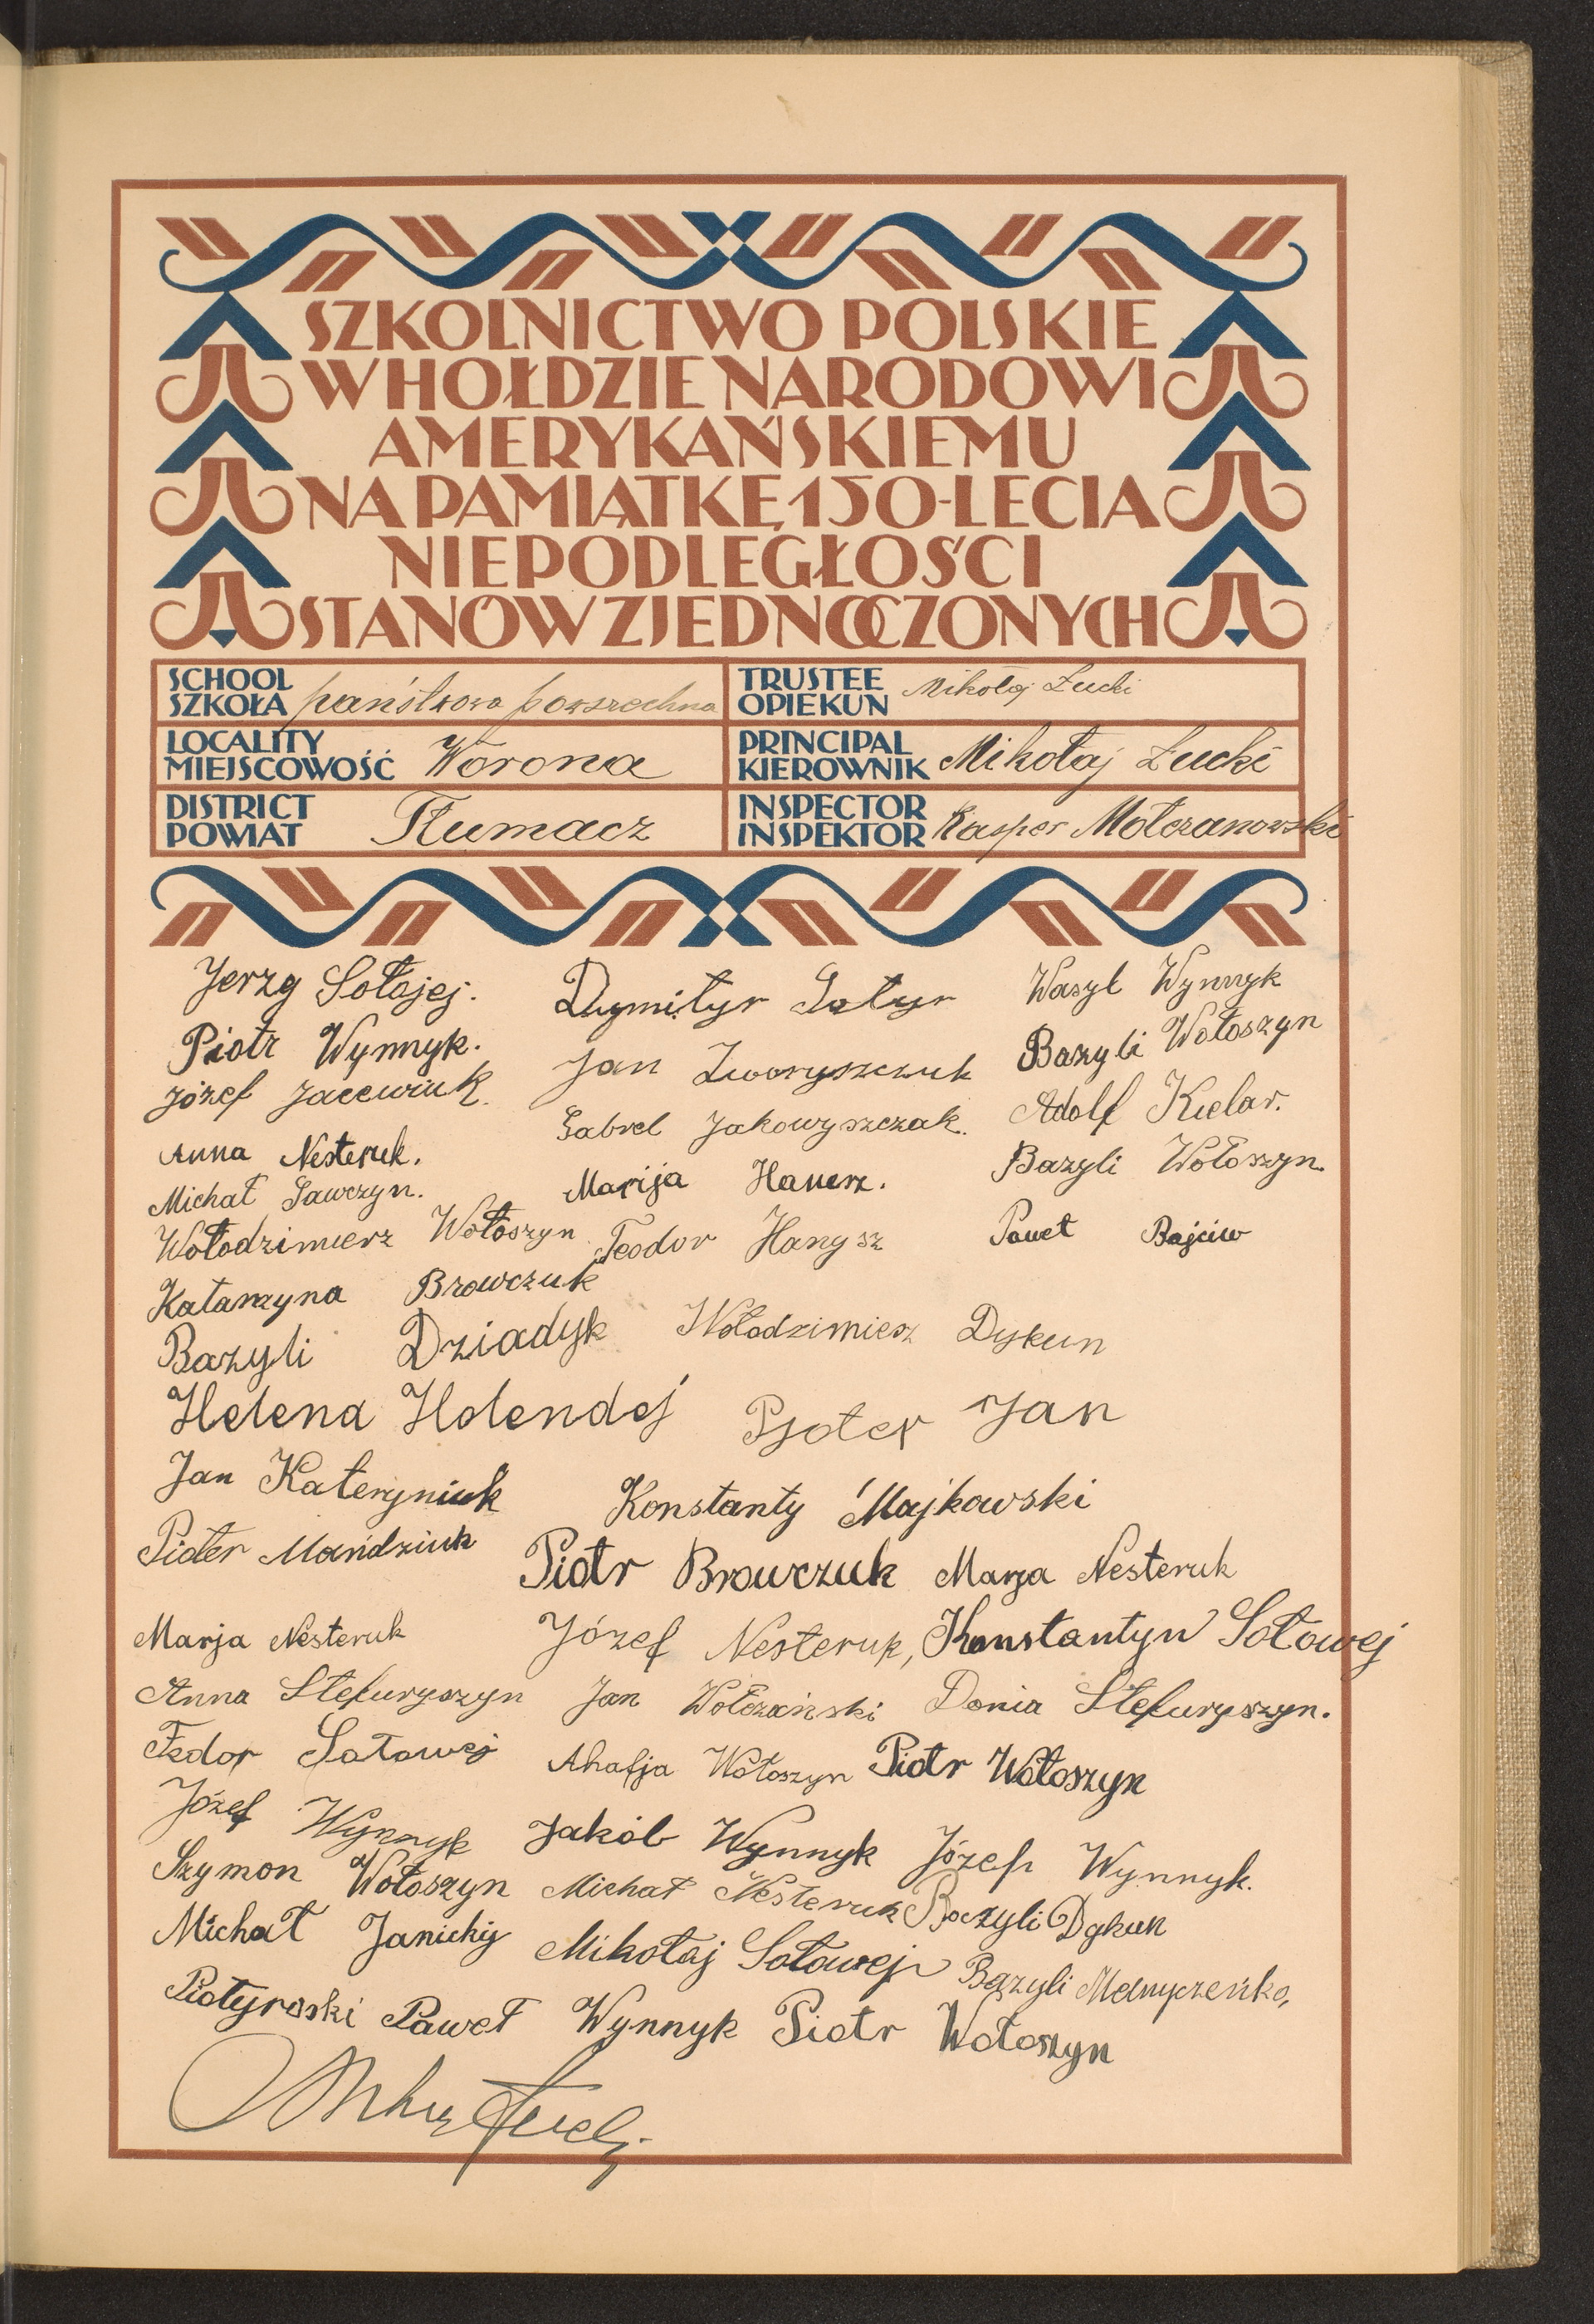 SZKOLNICTWO POLSKIE
W HOŁDZIE NARODOWI
AMERYKAŃSKIEMU
NA PAMIĄTKĘ 150-LECIA
NIEPODLEGŁOŚCI
STANÓW ZJEDNOCZONYCH
SCHOOL
SZKOŁA państwowa powszechna
TRUSTEE
OPIEKUN Mikołaj Łucki
LOCALITY
MIEJSCOWOŚĆ Worona
PRINCIPAL
KIEROWNIK Mikołaj Łucki
DISTRICT
POWIAT Tłumacz
INSPECTOR
INSPEKTOR Kasper Mołczanowski
Jerzy Sołojej. Dymityr Satyr Wasyl Wynnyk
Piotr Wynnyk. Jan Iworyszczuk Bazyli Wołoszyn
Józef Jacewiuk. Gabrel Jakowyszczak. Adolf Kielar.
Anna Nesteruk. Marija Hanusz. Bazyli Wołoszyn.
Michał Sawczyn.
Wołodzimierz Wołoszyn Teodor Hanysz Paweł Bajciw
Katarzyna Browczuk
Bazyli Dziadyk Wołodzimierz Dykun
Helena Holendej Pjoter Jan
Jan Kateryniuk Konstanty Majkowski
Pioter Mańdziuk Piotr Browczuk Marja Nesteruk
Marja Nesteruk Józef Nesteruk, Konstantyn Sołowej
Anna Stefuryszyn Jan Wołczański Donia Stefuryszyn.
Fedor Sołowej Ahafja Wołoszyn Piotr Wołoszyn
Józef Wynnyk Jakób Wynnyk Józef Wynnyk.
Szymon Wołoszyn Michał Nesteruk Bazyli Dykun
Michał Janickij Mikołaj Sołowej Bazyli Melnyczeńko,
Piotyroski Paweł Wynnyk Piotr Wołoszyn